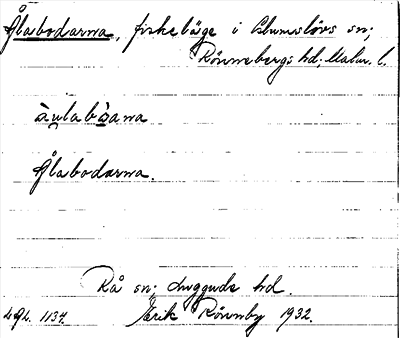 Ålabodarna, fiskeläge i Glumslövs sn;
Rönnebergs hd; Malm. l.
àulabòana
Ålabodarna.
Rå sn; Luggude hd.
Erik Rönnby 1932.